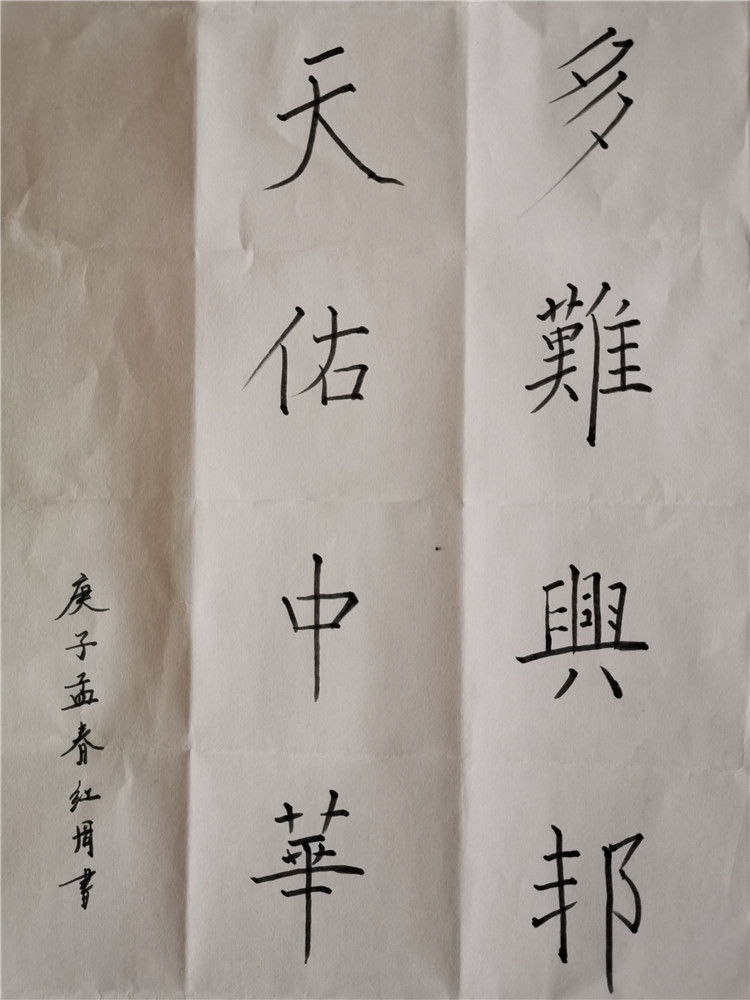 多難興邦
天佑中華
庚子孟春红周書